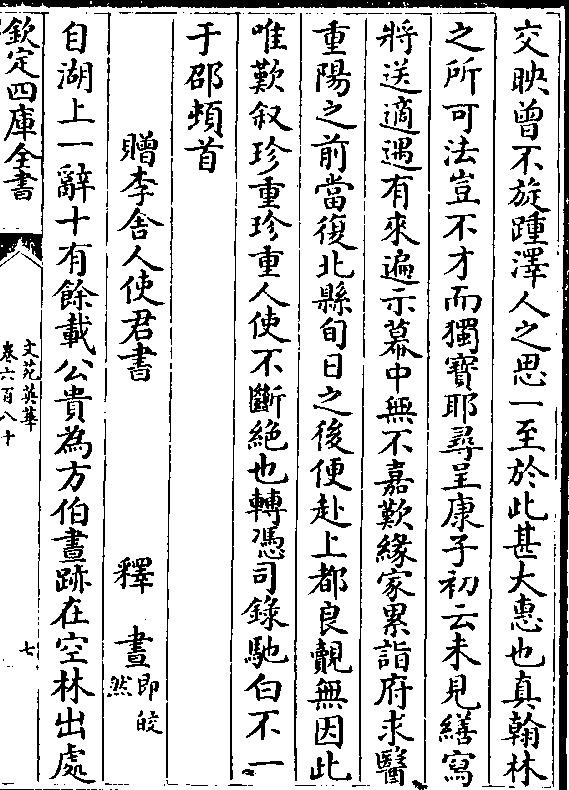 交映曾不旋踵澤人之思一至於此甚大惠也真翰林
之所可法豈不才而獨寶耶尋呈康子初云未見繕寫
將送適遇有來遍示幕中無不嘉歎緣家累詣府求醫
重陽之前當復北縣旬日之後便赴上都良覿無因此
唯歎叙珍重珍重人使不斷絶也轉憑司錄馳白不一
于邵頓首
贈李舍人使君書 釋晝即皎然
自湖上一辭十有餘載公貴為方伯晝跡在空林出處
欽定四庫全書
文苑英華
卷六百八十
七